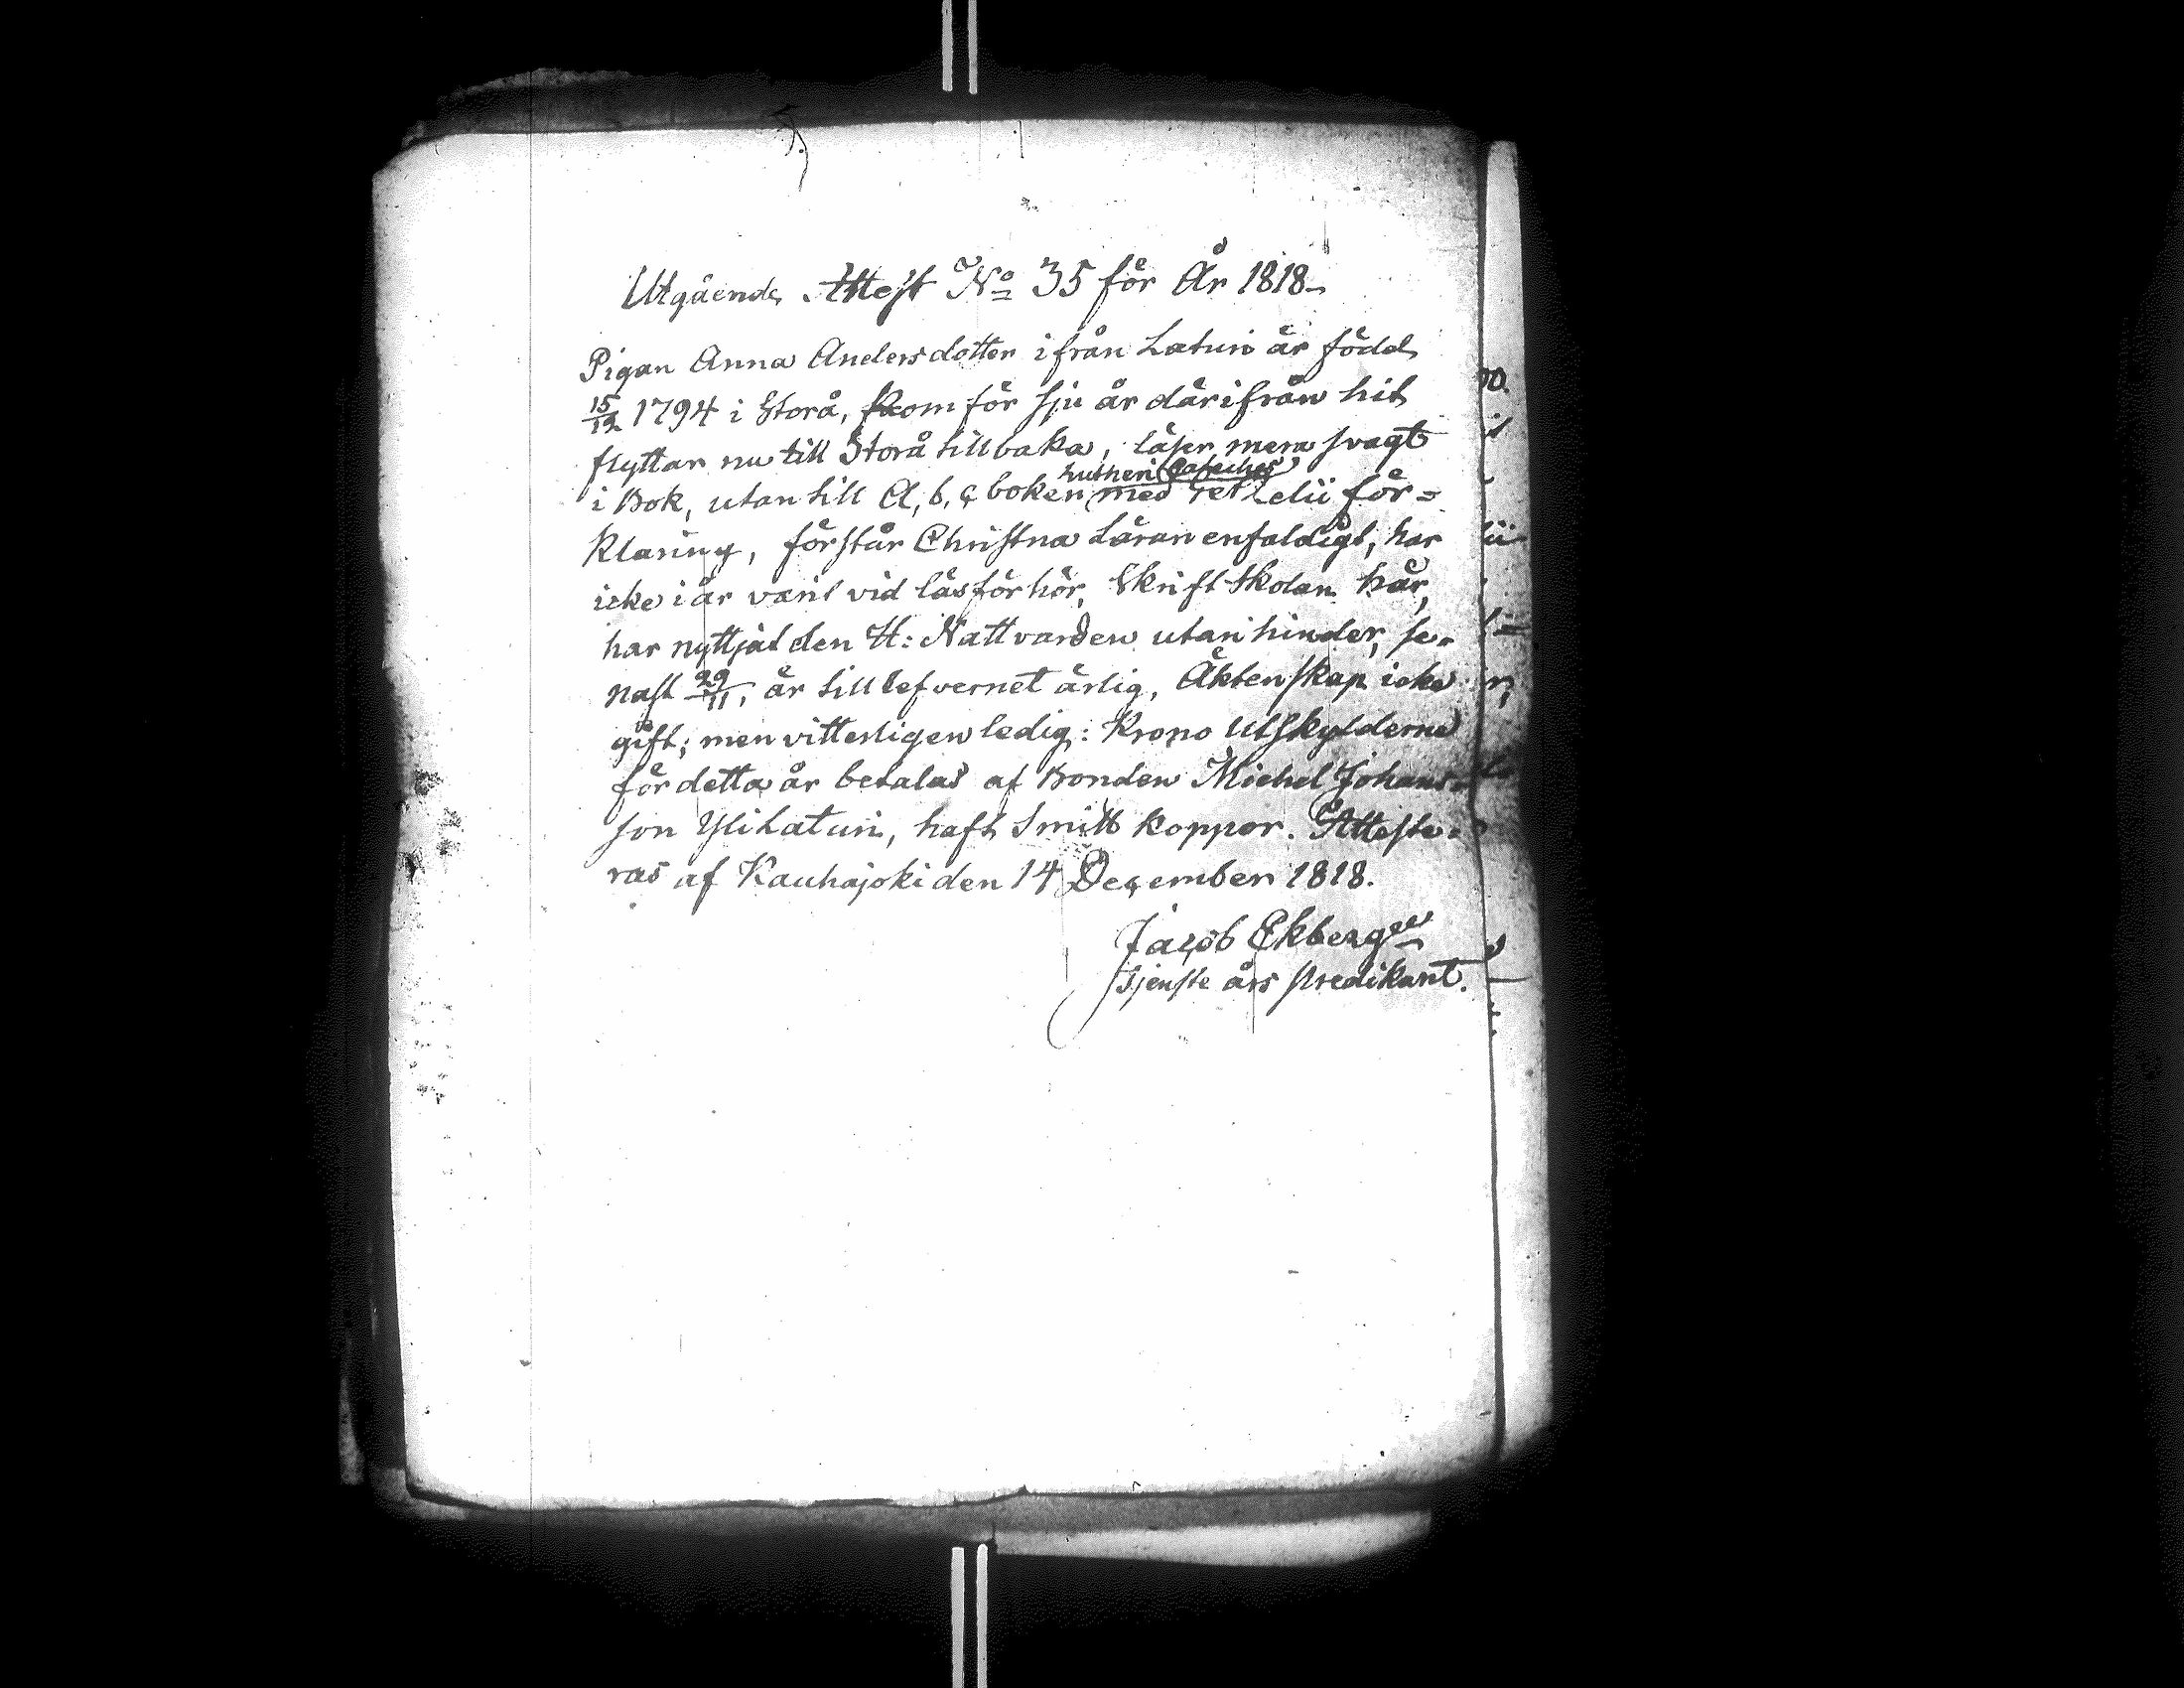 Utgående Attest No 35 för År 1818.
Pigan Anna Andersdotter ifrån Laturi är född
15/12 1794 i Storå, kom för sju år därifrån hit
flyttar nu till Storå tillbaka, läser mera svagt
Lutheri Cateches
i Bok, utantill A, b, c boken med förklaring
Klaring, förstår Christna Läran enfaldigt, har
icke i år varit vid läsförhör, Skriftskolan här,
har nyttjat den H: Nattvarden utan hinder, se=
nast 29/11, är till lefvernet ärlig, Äktenskap icke
gift; men vitterligen ledig: Krono Utskylderne
för detta år betalas af Bonden Michel Johans=
son Yli Laturi, haft Smitt koppor. Atteste=
ras af Kauhajoki den 14 December 1818.
Jacob Ekberg
tjenste års Predikant.